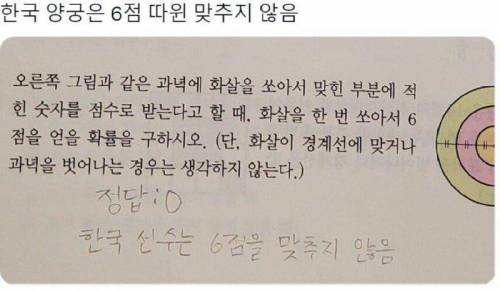 한국 양궁은 6점 따윈 맞추지 않음
오른쪽 그림과 같은 과녁에 화살을 쏘아서 맞힌 부분에 적
힌 숫자를 점수로 받는다고 할 때, 화살을 한 번 쏘아서 6
점을 얻을 확률을 구하시오. (단, 화살이 경계선에 맞거나
과녁을 벗어나는 경우는 생각하지 않는다.)
정답:0
한국 선수는 6점을 맞추지 않음